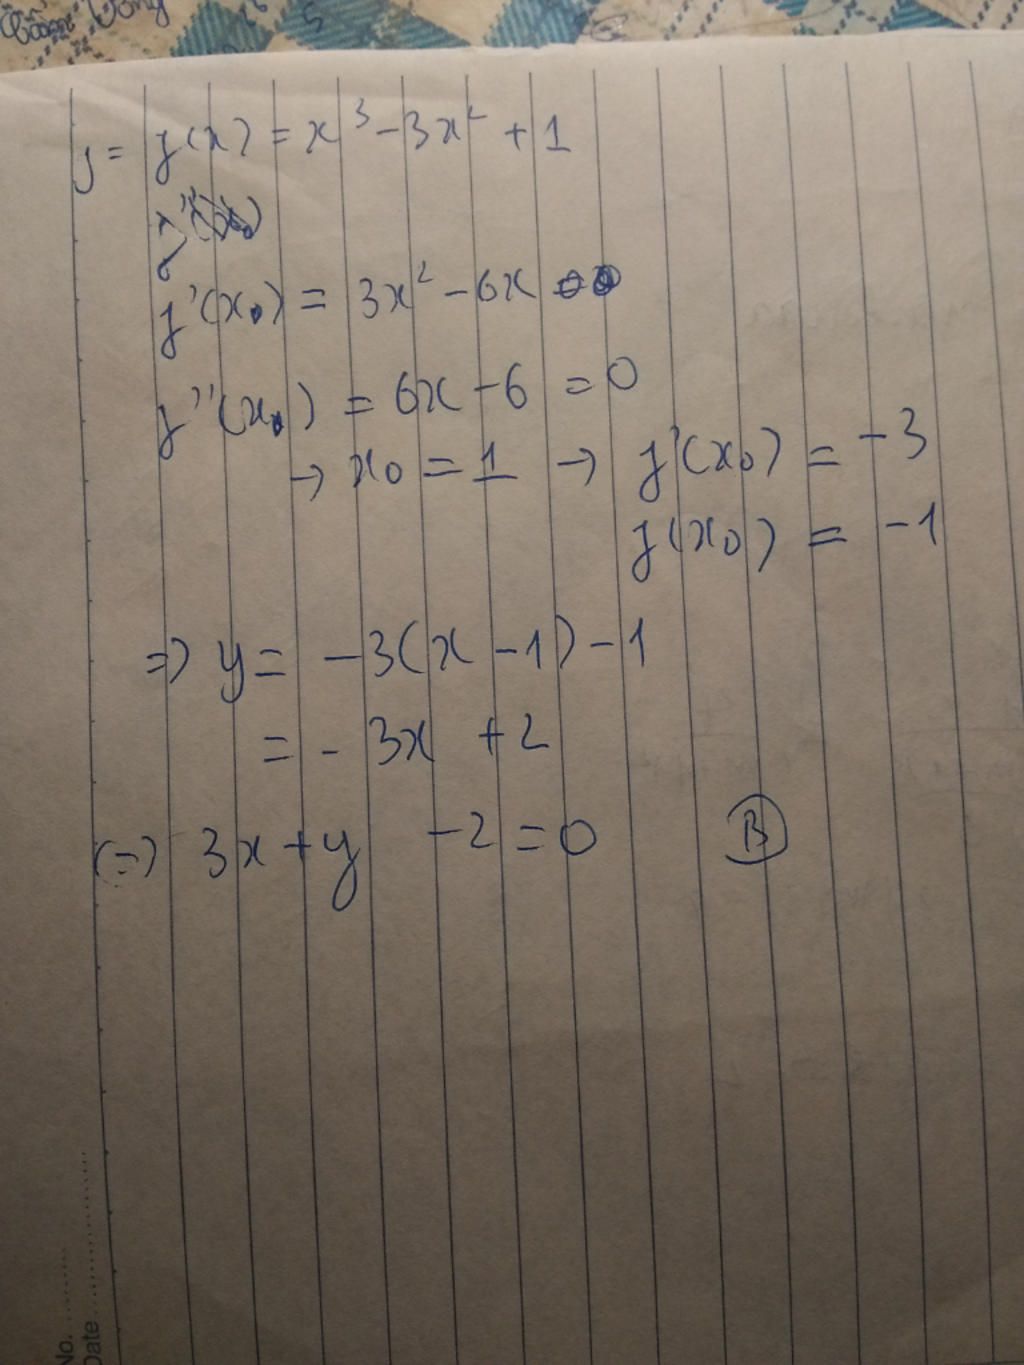 y = f(x) = x³ - 3x² + 1
f'(x₀) = 3x² - 6x
f''(x₀) = 6x - 6 = 0
→ x₀ = 1 → f'(x₀) = -3
f(x₀) = -1
=> y = -3(x - 1) - 1
= - 3x + 2
(=) 3x + y - 2 = 0 B
No. ............
Date ............